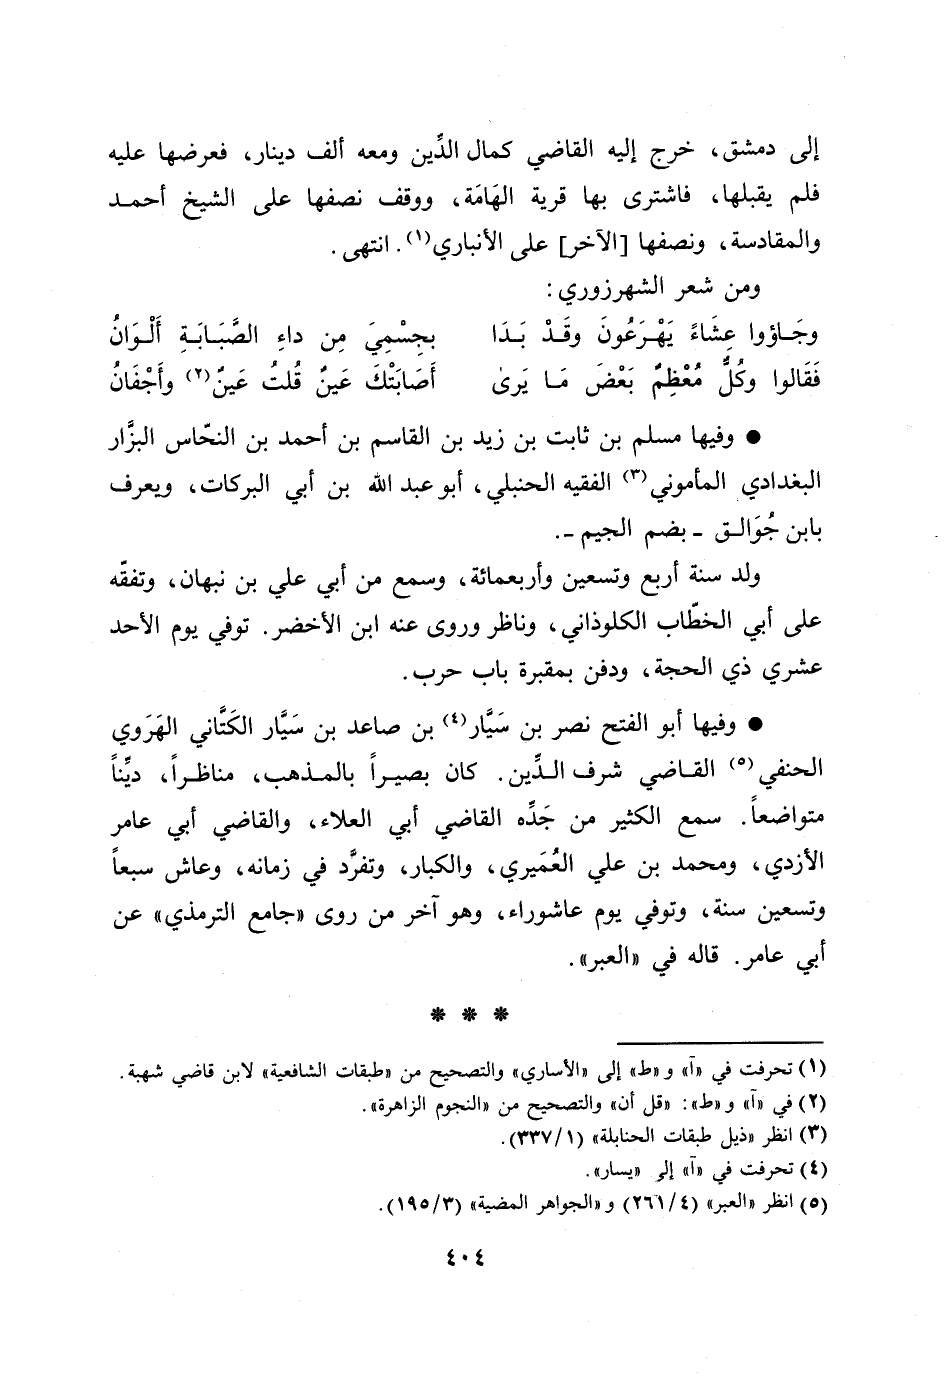 إلى دمشق، خرج إليه القاضي كمال الدِّين ومعه ألف دينار، فعرضها عليه
فلم يقبلها، فاشترى بها قرية الهَامَة، ووقف نصفها على الشيخ أحمد
والمقادسة، ونصفها [الآخر] على الأنباري(١). انتهى.
ومن شعر الشهرزوري:
وجَاؤوا عِشَاءً يَهْرَعُونَ وقَدْ بَدَا بجِسْمِيَ مِن داءِ الصَّبَابَةِ أَلْوَانُ
فَقَالوا وكُلٌّ مُعْظِمٌ بَعْضَ مَا يَرىٰ أَصَابَتْكَ عَينٌ قُلتُ عَينٌ(٢) وأَجْفَانُ
● وفيها مسلم بن ثابت بن زيد بن القاسم بن أحمد بن النحّاس البزَّار
البغدادي المأموني(٣) الفقيه الحنبلي، أبو عبد الله بن أبي البركات، ويعرف
بابن جُوَالـق ـ بضم الجيم ـ.
ولد سنة أربع وتسعين وأربعمائة، وسمع من أبي علي بن نبهان، وتفقّه
على أبي الخطّاب الكلوذاني، وناظر وروى عنه ابن الأخضر. توفي يوم الأحد
عشري ذي الحجة، ودفن بمقبرة باب حرب.
● وفيها أبو الفتح نصر بن سَيَّار(٤) بن صاعد بن سَيَّار الكَتَّاني الهَرَوي
الحنفي(٥) القاضي شرف الدِّين. كان بصيراً بالمذهب، مناظراً، ديِّناً
متواضعاً. سمع الكثير من جَدِّه القاضي أبي العلاء، والقاضي أبي عامر
الأزدي، ومحمد بن علي العُمَيري، والكبار، وتفرَّد في زمانه، وعاش سبعاً
وتسعين سنة، وتوفي يوم عاشوراء، وهو آخر من روى «جامع الترمذي» عن
أبي عامر. قاله في «العبر».
* * *
(١) تحرفت في «آ» و«ط» إلى «الأساري» والتصحيح من «طبقات الشافعية» لابن قاضي شهبة.
(٢) في «آ» و«ط»: «قل أن» والتصحيح من «النجوم الزاهرة».
(٣) انظر «ذيل طبقات الحنابلة» (٣٣٧/١).
(٤) تحرفت في «آ» إلى «يسار».
(٥) انظر «العبر» (٢٦١/٤) و«الجواهر المضية» (١٩٥/٣).
٤٠٤